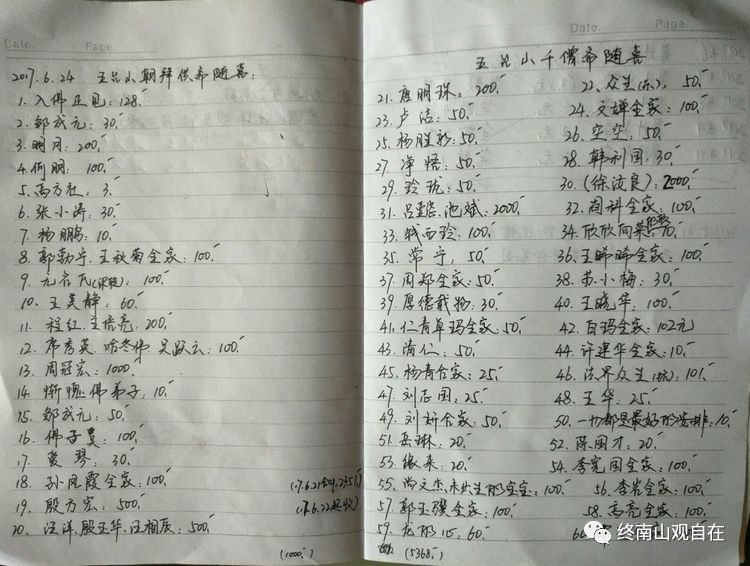 Date.
Page.
2017.6.24 五台山朝拜供斋随喜:
1. 入佛正见: 128.
2. 邹成元: 30.
3. 明月: 200.
4. 何朋: 100.
5. 高方社: 3.
6. 张小涛: 30.
7. 杨鹏: 10.
8. 郭勃宇. 王秋菊全家: 100.
9. 100.
10. 王美静: 60.
11. 程红. 王信亮: 200.
12. 席秀英. 100.
13. 周冠宏: 1000.
14. 惭愧佛弟子: 10.
15. 邹成元: 50.
16. 佛子 100.
17. 琴: 30.
18. 孙凤霞全家: 100.
19. 殷方宏: 500.
20. 汪洋. 殷玉华. 汪相辰: 500.
(1000.)
Date.
Page.
五台山千僧斋随喜
21. 唐明珠: 200.
22. 众生(东). 50.
23. 卢洁: 50.
24. 文婵全家: 100.
25. 杨胜彩: 50.
26. 空空: 50.
27. 净悟: 50.
28. 韩利国: 30.
29. 玲珑: 50.
30. (徐汝良): 2000.
31. 池斌: 2000.
32. 尚科全家: 100.
33. 钱西玲: 100.
34. 欣欣向荣 10.
35. 常宁: 50.
36. 王晞晞全家: 100.
37. 周郑全家: 50.
38. 苏小梅: 30.
39. 厚德载物: 30.
40. 王晓华: 100.
41. 仁青卓玛全家: 50.
42. 白玛全家: 102元
43. 蒲仁: 50.
44. 许建华全家: 10.
45. 杨青合家: 25.
46. 法界众生 101.
47. 刘志国: 25.
48. 王华: 25.
49. 刘新合家: 50.
50. 一切都是最好的安排: 10.
51. 岳琳: 20.
52. 陈国才: 20.
53. 缘来: 20.
54. 李宪国全家: 100.
55. 尚文杰. 未出生的宝宝: 100.
56. 李岩全家: 100.
57. 郭玉强全家: 100.
58. 高亮全家: 100.
59. 60.
60.
(5368.)
终南山观自在